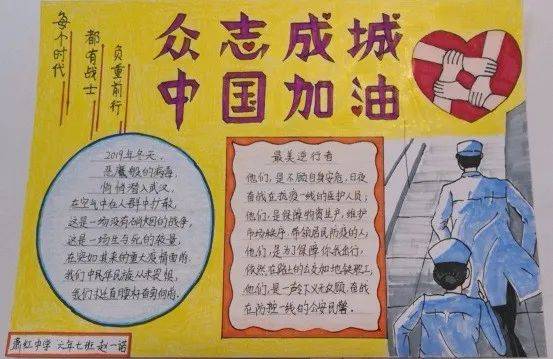 每个时代
都有战士
负重前行
众志成城
中国加油
2019年冬天,
恶魔般的病毒,
悄悄潜入武汉,
在空气中在人群中扩散,
这是一场没有硝烟的战争,
这是一场生与死的较量,
在突如其来的重大疫情面前
我们中华民族从未畏惧,
最美逆行者
他们,是不顾自身安危,日夜
奋战在抗疫一线的医护人员;
他们,是保障物资生产,维护
市场秩序,带领居民防疫的人;
他们,是为了保障你我出行,
依然在路上的公交和地铁职工,
他们,是一声令下义无反顾,奋战
在防控一线的公安民警。
肃虹中学 六年七班 赵一诺